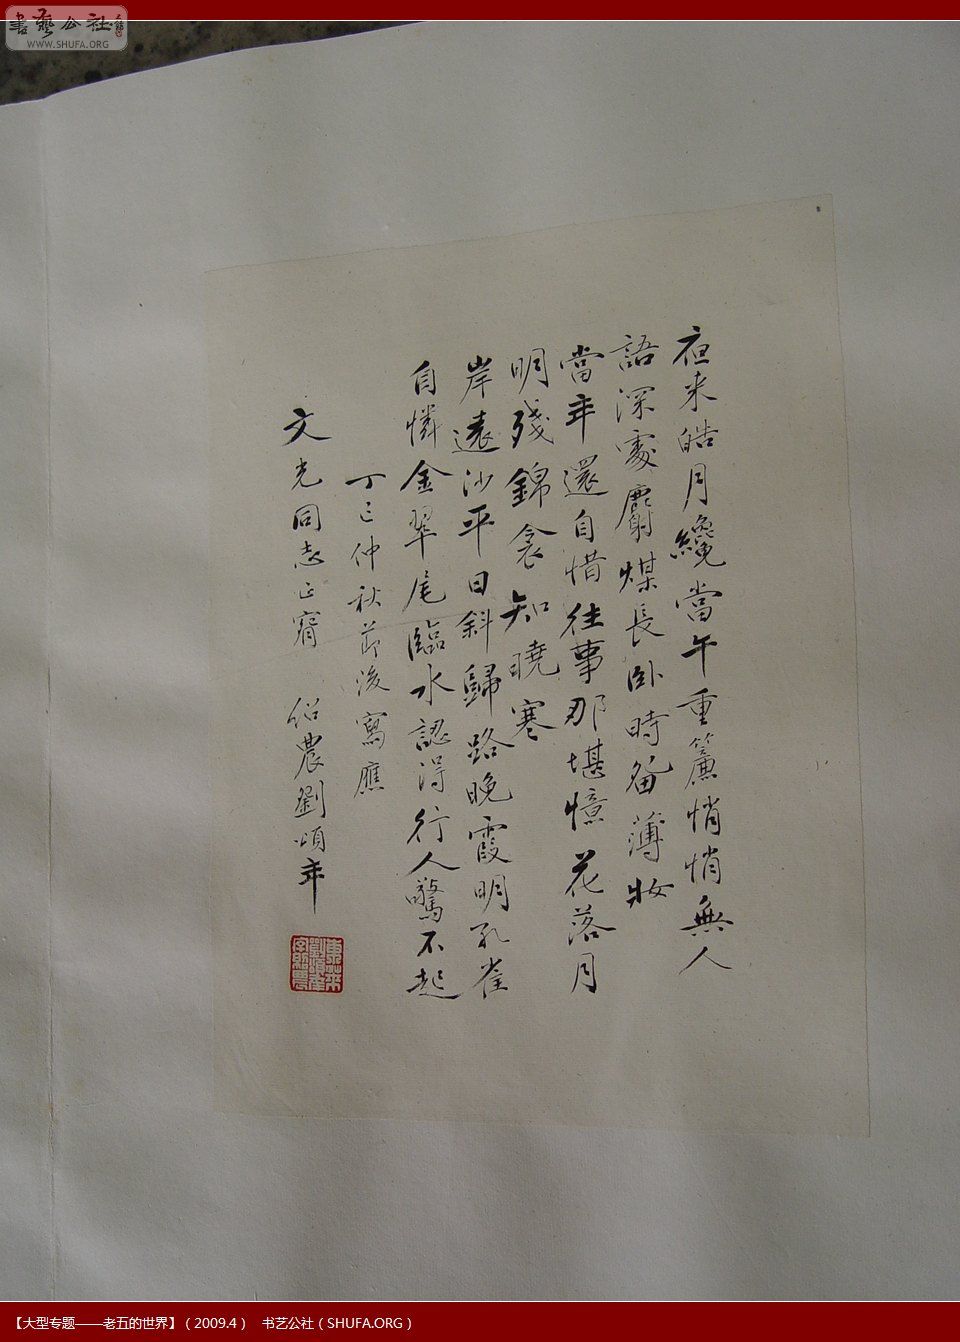 書藝公社
WWW.SHUFA.ORG
夜来皓月纔當午重簾悄悄無人
語深處麝煤長卧時留薄妝
當年還自惜往事那堪憶花落月
明殘錦衾知曉寒
岸遠沙平日斜歸路晚霞明孔雀
自憐金翠尾臨水認得行人驚不起
丁巳仲秋節後寫應
文光同志正窅 紹農劉頌年
東萊
劉頌年
字紹農
【大型专题——老五的世界】（2009.4） 书艺公社（SHUFA.ORG）